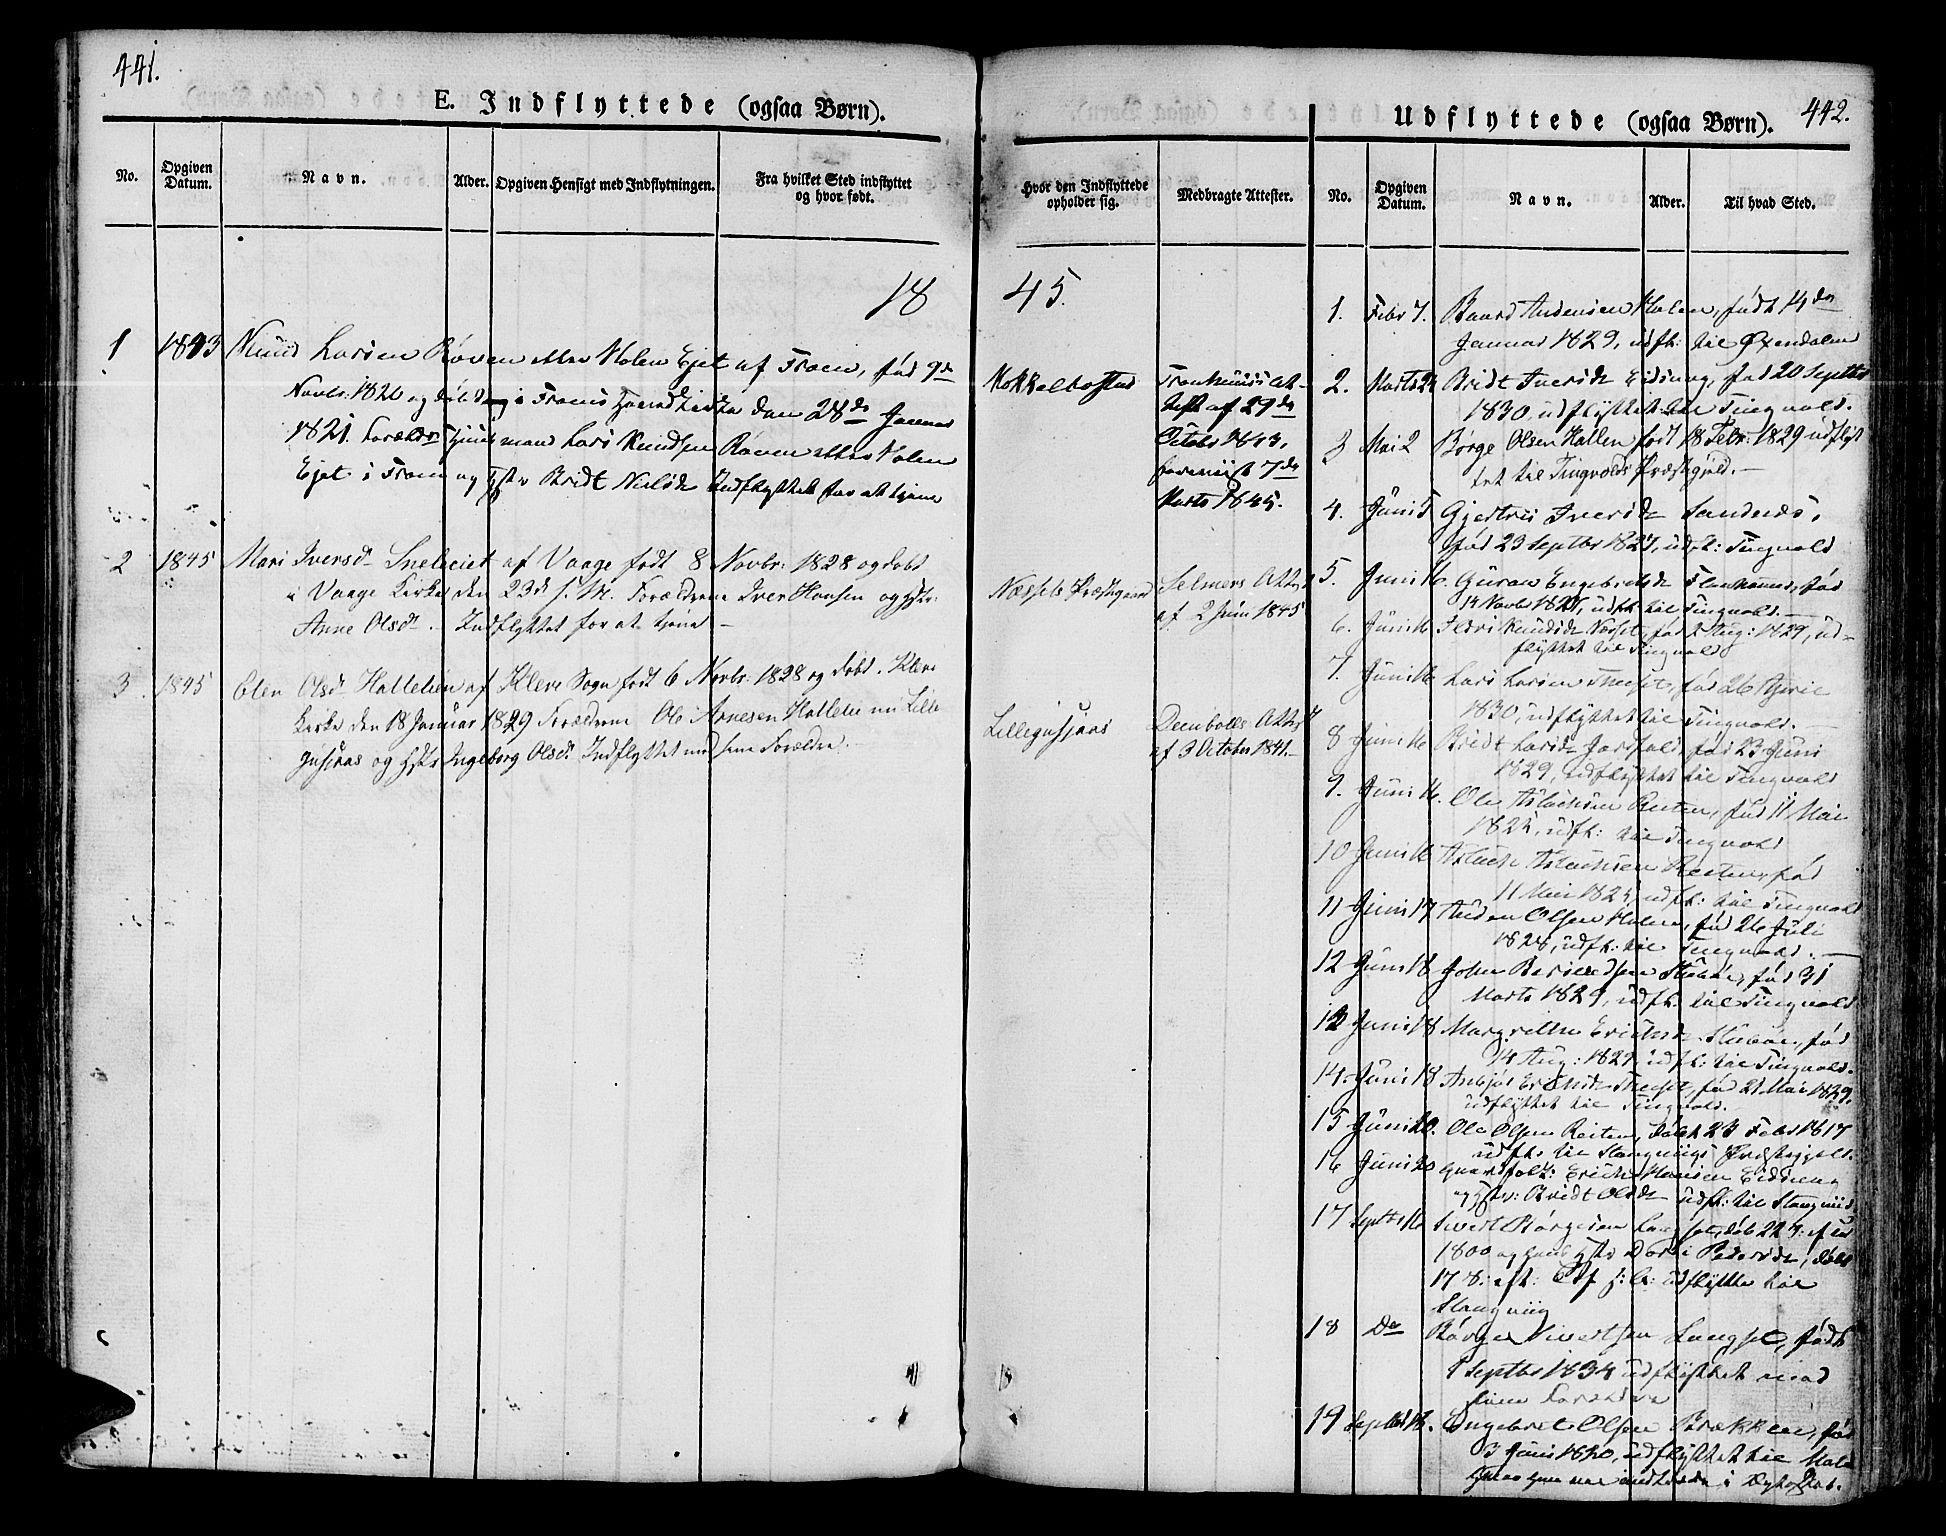 441.
E. Indflyttede (ogsaa Børn).
No.
Opgiven Datum.
Navn.
Alder.
Opgiven Hensigt med Indflytningen.
Fra hvilket Sted indflyttet og hvor født.
18
1 1843 Knud Larsen Røven eller Holen Ejet af Froen, fød 9de
Novbr: 1820 og døbt i Froens Hoved Kirke den 28de Januar
1821. Forældr: Huusmand Lars Knudsen Røven eller Holen
Ejet i Froen og Hstr Bridt Nielsdr Indflyttet for at tjene
2 1845 Mari Iversd Sneleiet af Vaage født 8 Novbr: 1828 og døbt
i Vaage Kirke den 23d s. M. Forældrene Iver Hansen og Hstr:
Anne Olsdr. Indflyttet for at tjene –
3 1845 Elen Olsd Hallelien af Kleve Sogn født 6 Novbr: 1828 og døbt i Kleve
Kirke den 18 Januar 1829 Forældrene Ole Arnesen Hallelie nu Lille
gusjaas og Hstr Ingeborg Olsd: Indflyttet med sine Forældre. –
442.
Hvor den Indflyttede opholder sig.
Medbragte Attester.
45.
Mokkelbostad
at-
test af 29de
Octobr 1843,
foreviist 7de
Marts 1845.
Næssets Præstegaard
Selmers Attest
af 2 Juni 1845
Lillegusjaas
Deinbolls Attest
af 3 October 1841. –
Udflyttede (ogsaa Børn).
No.
Opgiven Datum.
Navn.
Alder.
Til hvad Sted.
1. Febr 7. Baard Andersen Holen, født 14de
Januar 1829, udfl: til Øxendalen
2. Marts 24 Bridt Iversdr Eidsvog, fød 20 Septbr
1830 udflyttet til Tingvold.
3 Mai 2 Børge Olsen Hallen født 18 Febr: 1829 udflyt
tet til Tingvolds Præstegjeld. –
4. Juni 5 Gjertru Iversdr Sandnes,
fød 23 Septbr 1827, udfl: Tingvold
5. Juni 16 Guron Engebretsdr, fød
14 Novbr, udfl: til Tingvold. –
6. Juni 16 Knudsdr Næsset, fød 2 Aug: 1829, ud-
flyttet til Tingvold
7. Juni 16 Lars Larsen, fød 26 April
1830, udflyttet til Tingvold. –
8 Juni 16 Bridt Larsdr, fød 23 Juni
1829, udflyttet til Tingvold
9. Juni 16. Ole Aslachsen Reiten, fød 11 Mai
udfl: til Tingvold
10 Juni 16 Aslach Aslachsen Reiten, fød
11 Mai udfl: til Tingvold
11 Juni 17 Anders Olsen Holen, fød 26 Juli
1828, udfl: til Tingvold. –
12 Juni 18 John, fød 31
Marts 1829, udfl: til Tingvold
13 Juni 18 Margrethe Erichsdr, fød
14 Aug: udfl: til Tingvold.
14. Juni 18 Anbjør Erichsdr, fød 21 Mai 1829.
udflyttet til Tingvold.
15 Juni 20. Ole Olsen Reiten, døbt 23 Febr 1817
udfl: til Stangviigs Præstegjeld.
16 Juni 20 Erich Hansen Eidsvog
og Hstr: Bridt Olsdr udfl: til Stangviig
17 Septbr 16 Sivert Børgesen Langset, døbt
1800 og hans Hstr Pedersdr, døbt
udflyttet til
Stangviig
18 Do Børge Sivertsen Langset, født
1 Septbr 1834 udflyttet med
sine Forældre
19 Septbr 18. Engebret Olsen Brække, fød
3 Juni 1820, udflyttet til Molde